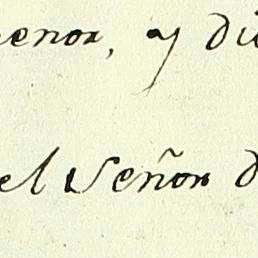 menor, y di
el Señor d